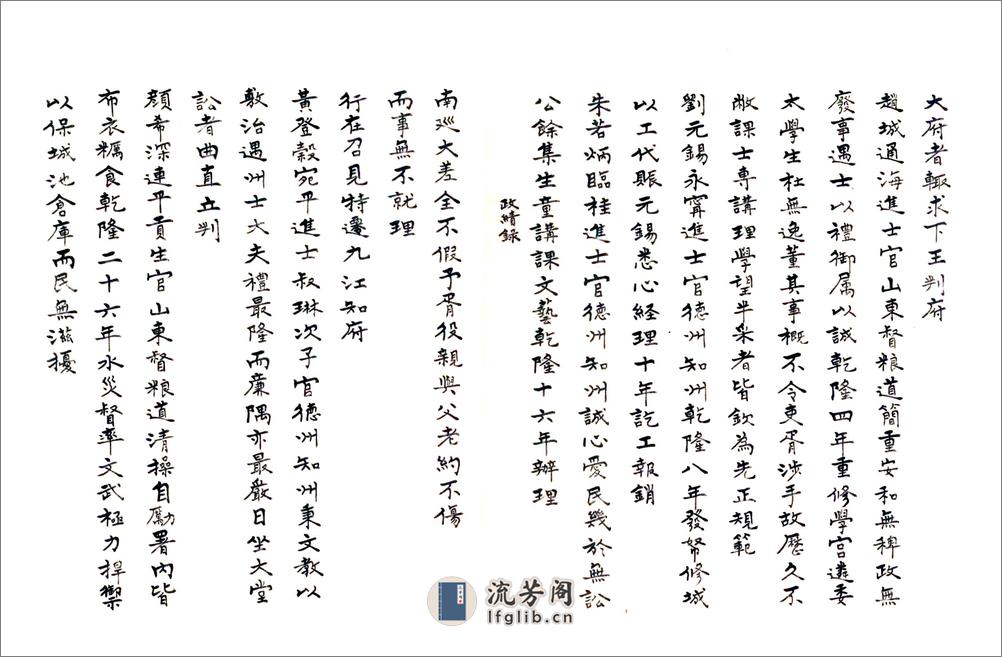 大府者輙求下王判府
趙城通海進士官山東督粮道簡重安和無稗政無
廢事遇士以禮御属以誠乾隆四年重修學宫遴委
太學生杜無逸董其事概不令吏胥涉手故歷久不
敝課士專講理學望半采者皆欽為先正規範
劉元錫永寗進士官德州知州乾隆八年發帑修城
以工代賑元錫悉心経理十年訖工報銷
朱若炳臨桂進士官德州知州誠心愛民幾於無訟
公餘集生童講課文藝乾隆十六年辦理
政績録
南廵大差全不假予胥役親與父老約不傷
而事無不就理
行在召見特遷九江知府
黃登穀宛平進士叔琳次子官德州知州秉文教以
敷治遇州士大夫禮最隆而廉隅亦最嚴日坐大堂
訟者曲直立判
顏希深連平貢生官山東督粮道清操自勵署內皆
布衣糲食乾隆二十六年水災督率文武極力捍禦
以保城池倉庫而民無滋擾
流芳阁
lfglib.cn